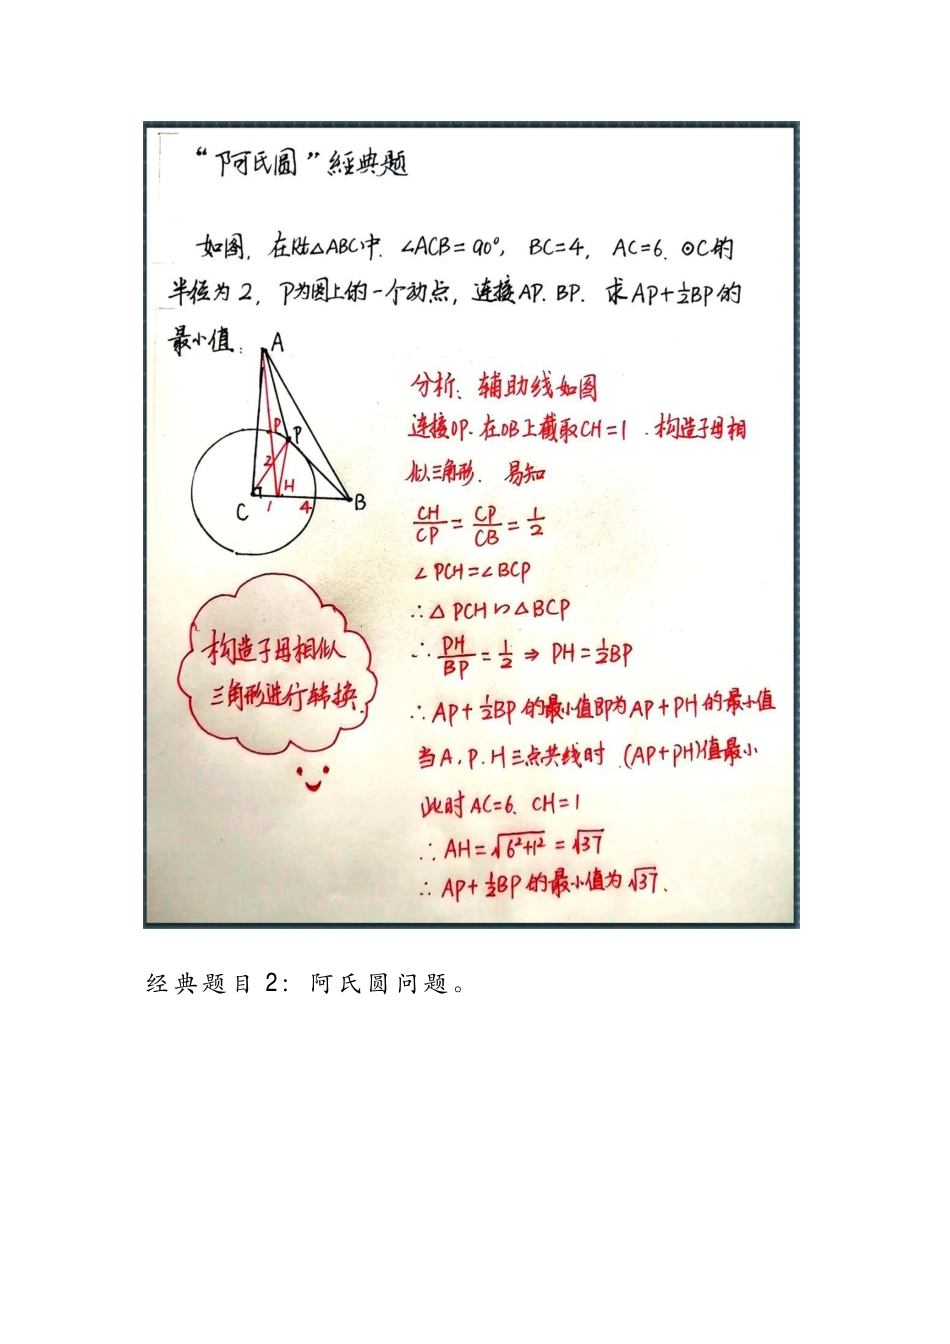 “阿氏圆”經典题
如图, 在Rt△ABC中. ∠ACB=90°, BC=4, AC=6. ⊙C的
半径为2, P为圆上的一个动点, 连接AP. BP. 求AP+½BP的
最小值.
A
P
P
2
H
C
1
4
B
分析: 辅助线如图
连接OP. 在OB上截取CH=1. 构造子母相
似三角形. 易知
CH/CP = CP/CB = 1/2
∠PCH=∠BCP
∴△PCH∽△BCP
∴ PH/BP = 1/2 ⇒ PH=½BP
∴AP+½BP的最小值即为AP+PH的最小值
当A, P. H三点共线时.(AP+PH)值最小
此时AC=6. CH=1
∴AH=√6²+1² = √37
∴AP+½BP的最小值为√37.
构造子母相似
三角形进行转换.
经典题目 2：阿氏圆问题。